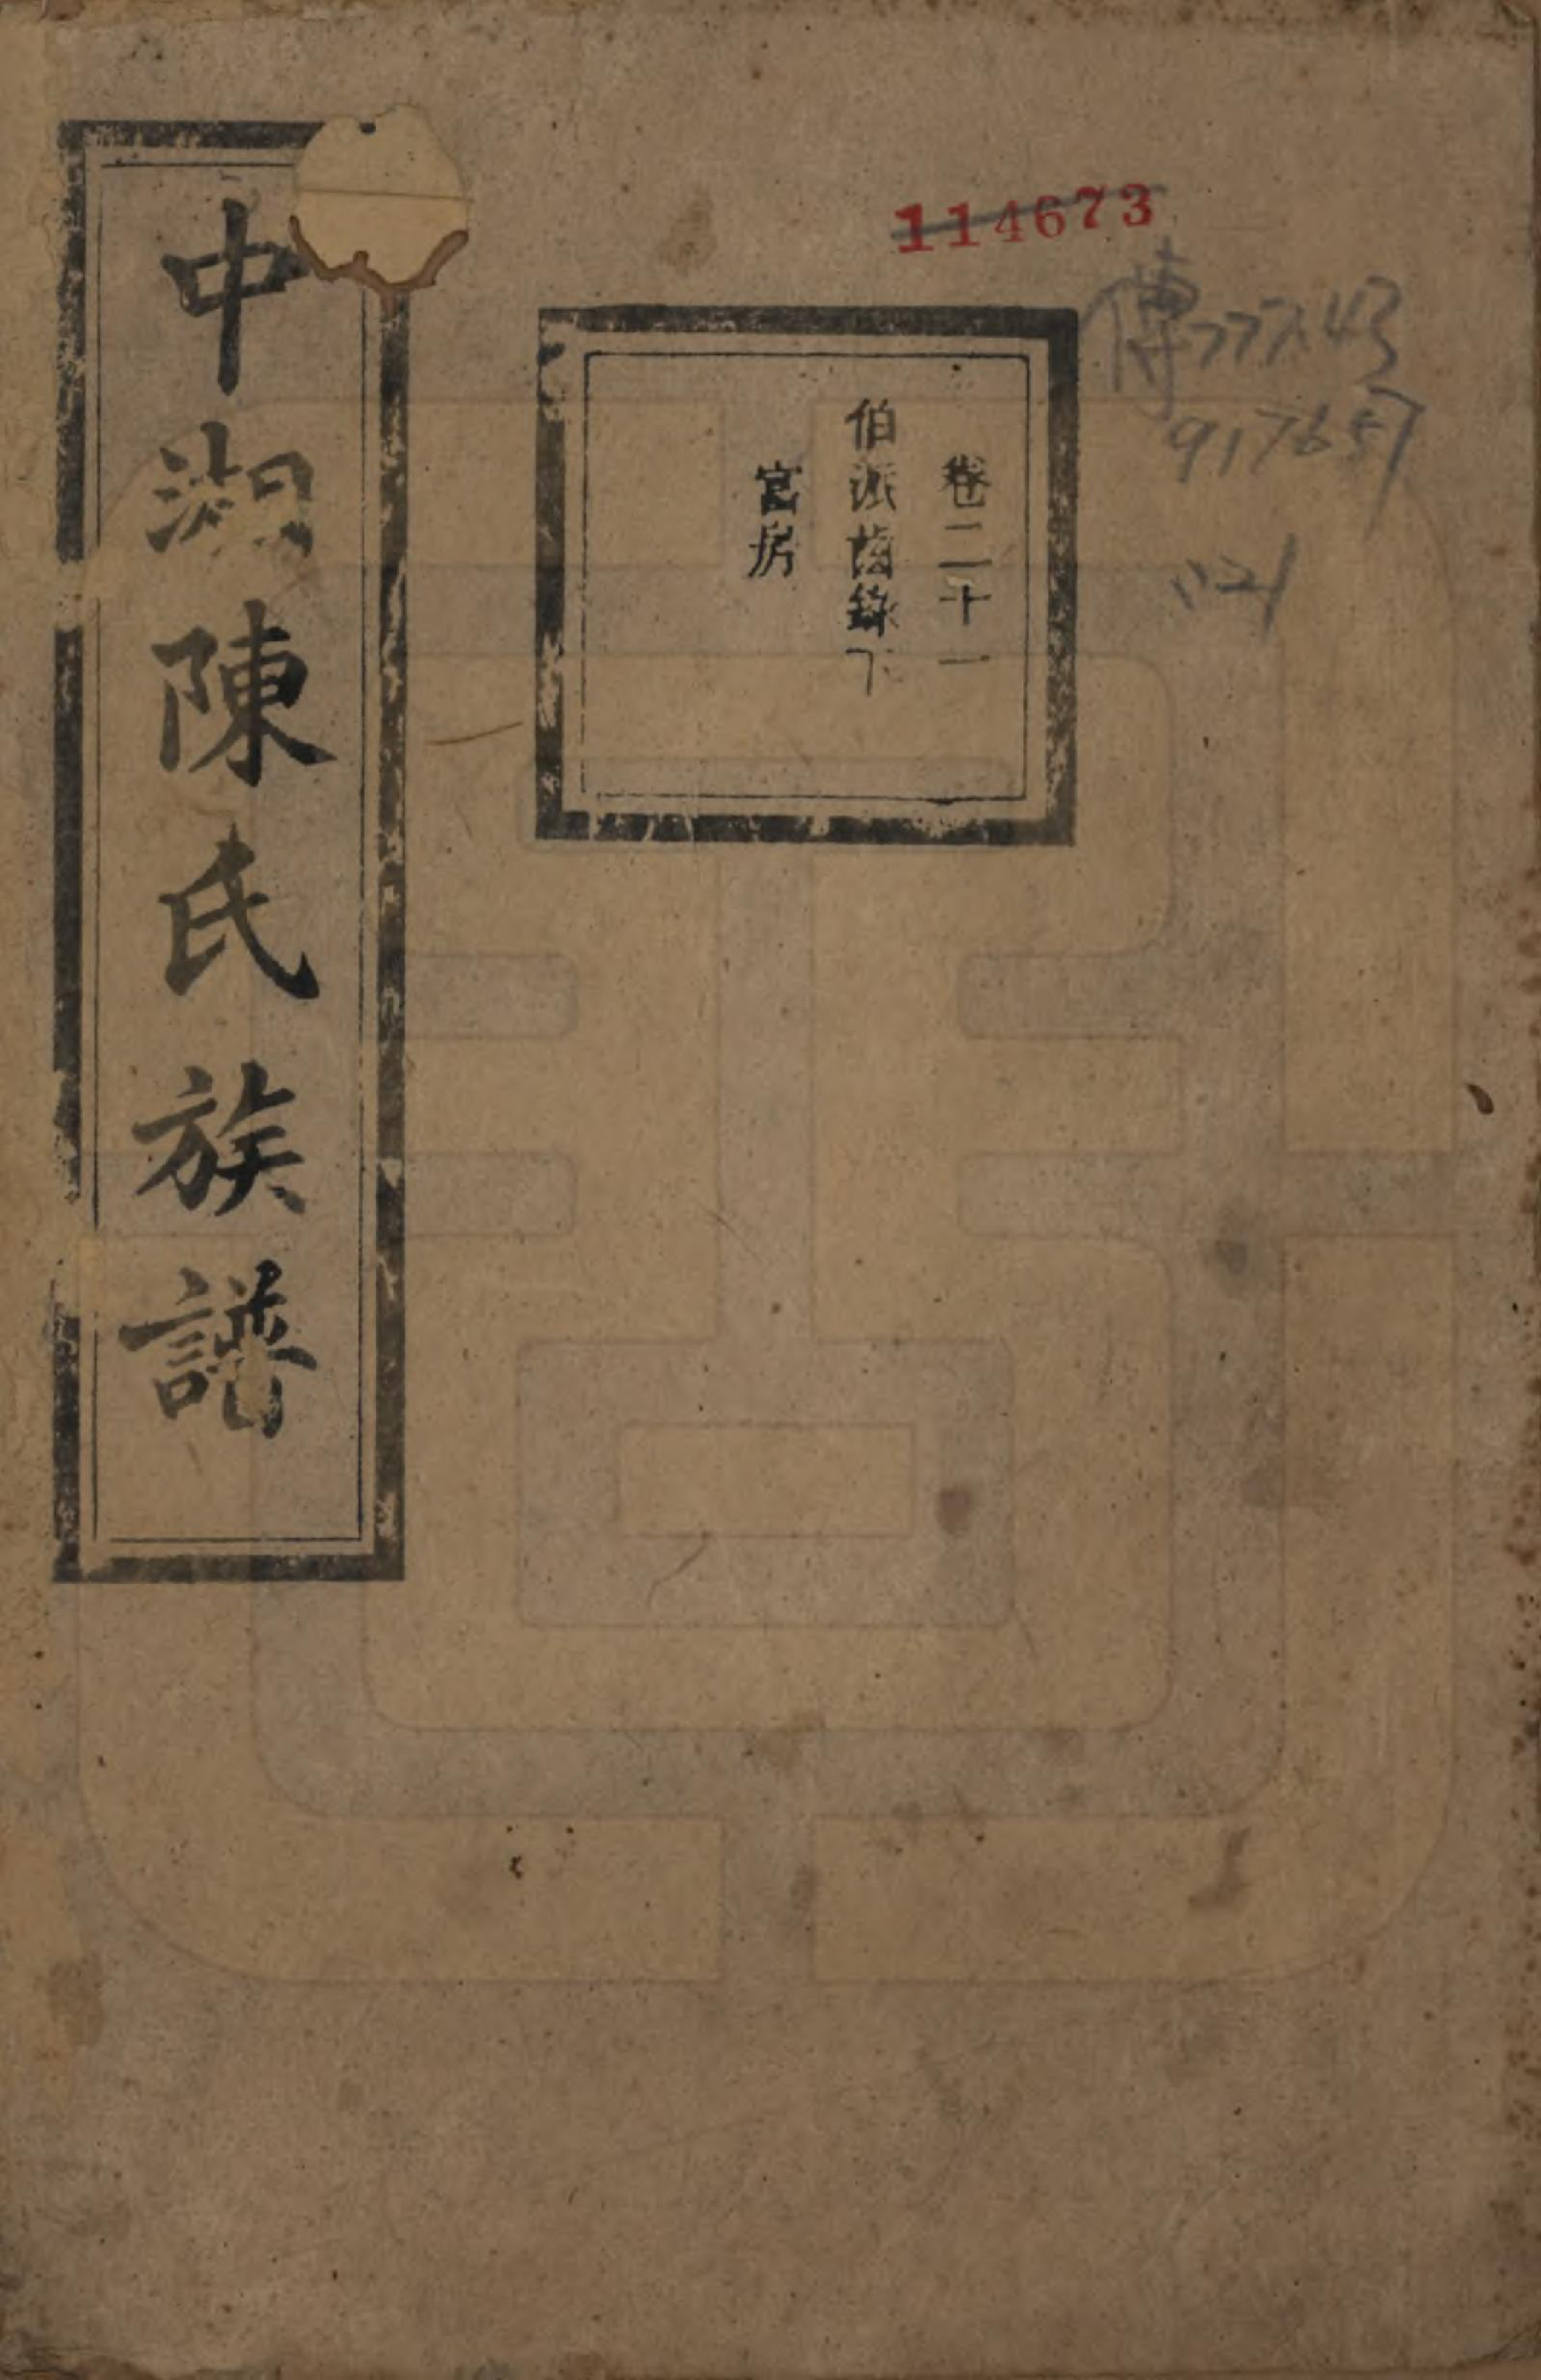 114673
傳777.43
917657
:121
卷二十一
伯派齒錄下
官房
中湖陳氏族譜